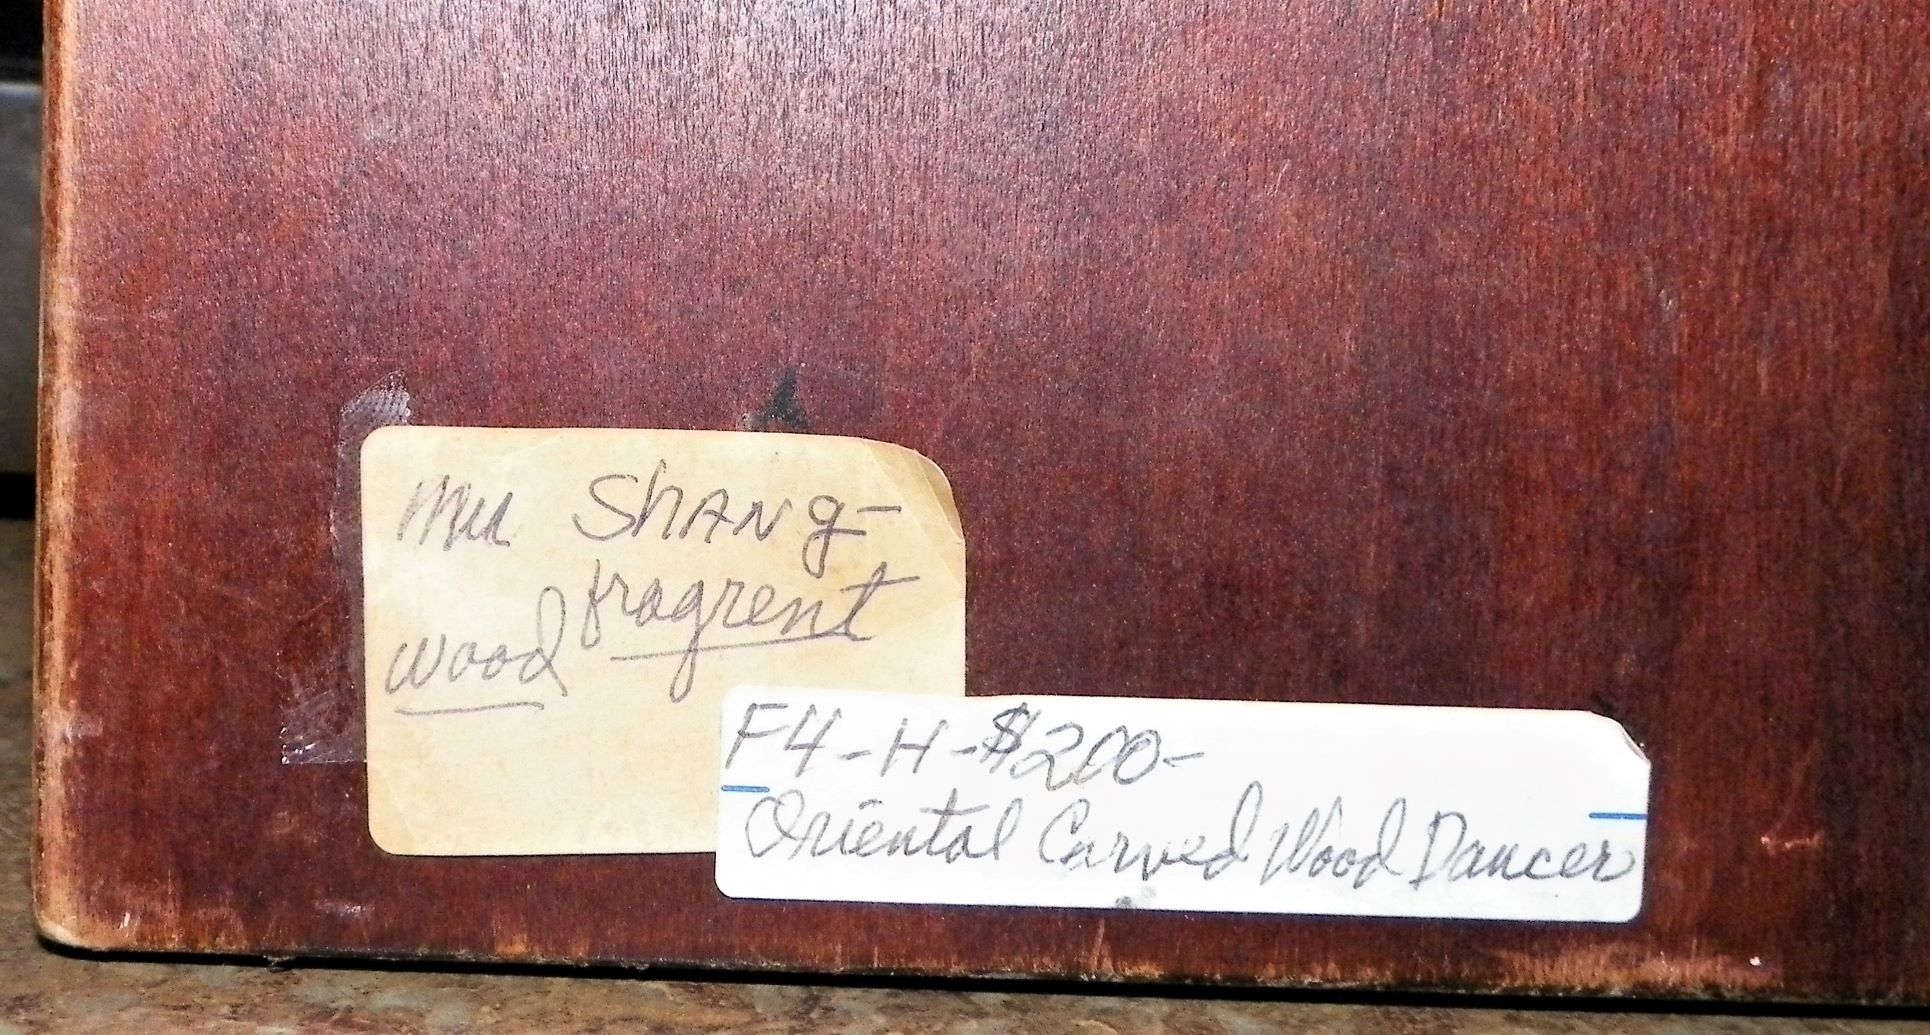 Mu ShANg-
fragrent
wood
F4-H-$200-
Oriental Carved Wood Dancer